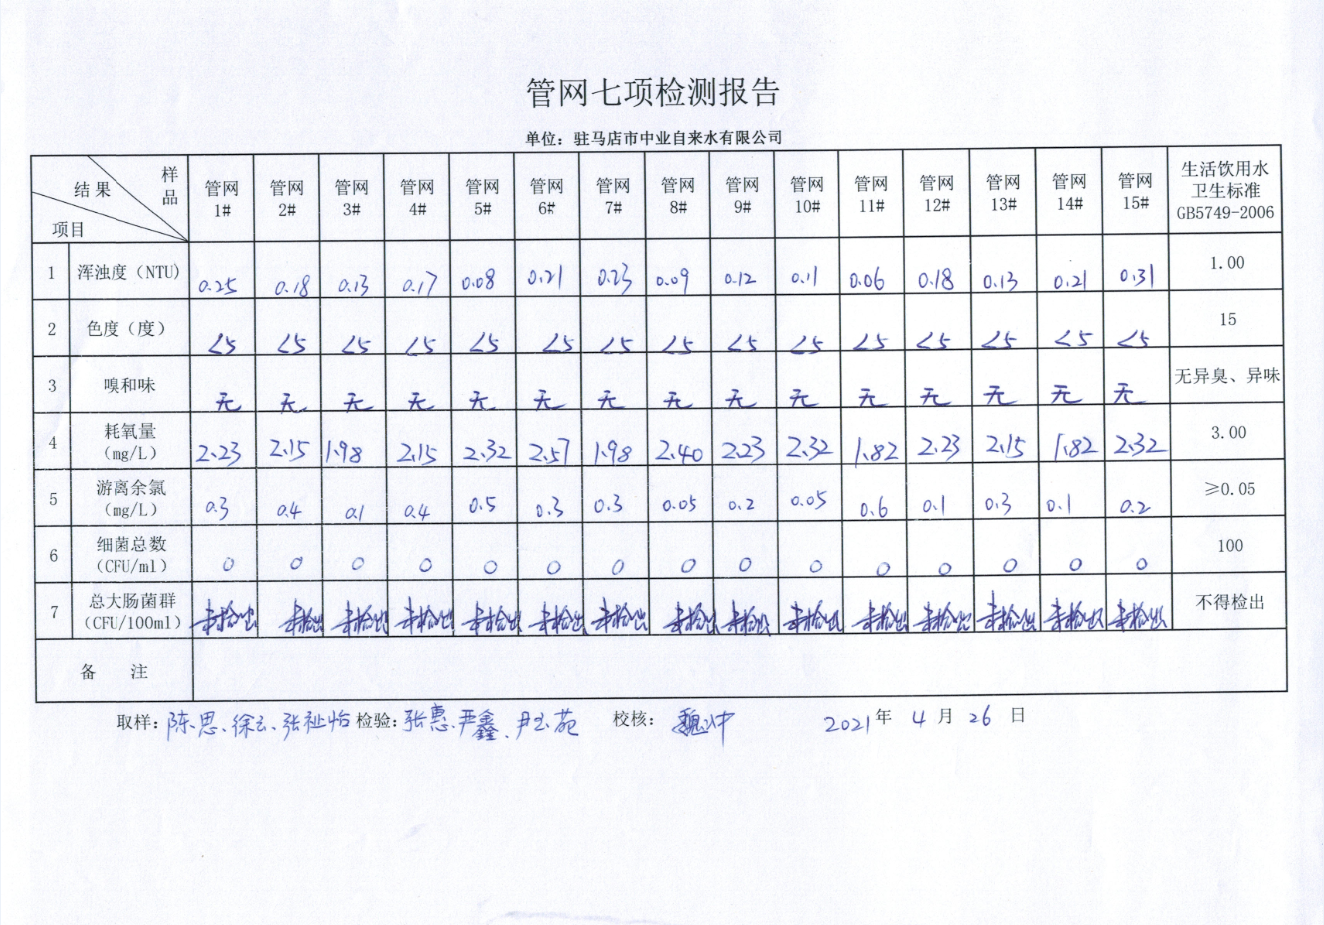 管网七项检测报告
单位：驻马店市中业自来水有限公司
结果 样品 项目 管网1# 管网2# 管网3# 管网4# 管网5# 管网6# 管网7# 管网8# 管网9# 管网10# 管网11# 管网12# 管网13# 管网14# 管网15# 生活饮用水卫生标准GB5749-2006
1 浑浊度（NTU） 0.25 0.18 0.13 0.17 0.08 0.21 0.23 0.09 0.12 0.11 0.06 0.18 0.13 0.21 0.31 1.00
2 色度（度） <5 <5 <5 <5 <5 <5 <5 <5 <5 <5 <5 <5 <5 <5 <5 15
3 嗅和味 无 无 无 无 无 无 无 无 无 无 无 无 无 无 无 无异臭、异味
4 耗氧量（mg/L） 2.23 2.15 1.98 2.15 2.32 2.57 1.98 2.40 2.23 2.32 1.82 2.23 2.15 1.82 2.32 3.00
5 游离余氯（mg/L） 0.3 0.4 0.1 0.4 0.5 0.3 0.3 0.05 0.2 0.05 0.6 0.1 0.3 0.1 0.2 ≥0.05
6 细菌总数（CFU/ml） 0 0 0 0 0 0 0 0 0 0 0 0 0 0 0 100
7 总大肠菌群（CFU/100ml） 未检出 未检出 未检出 未检出 未检出 未检出 未检出 未检出 未检出 未检出 未检出 未检出 未检出 未检出 未检出 不得检出
备 注
取样：陈思、徐云、张祉怡 检验：张惠、严鑫、尹玉苑 校核：魏冲 2021年 4月 26日